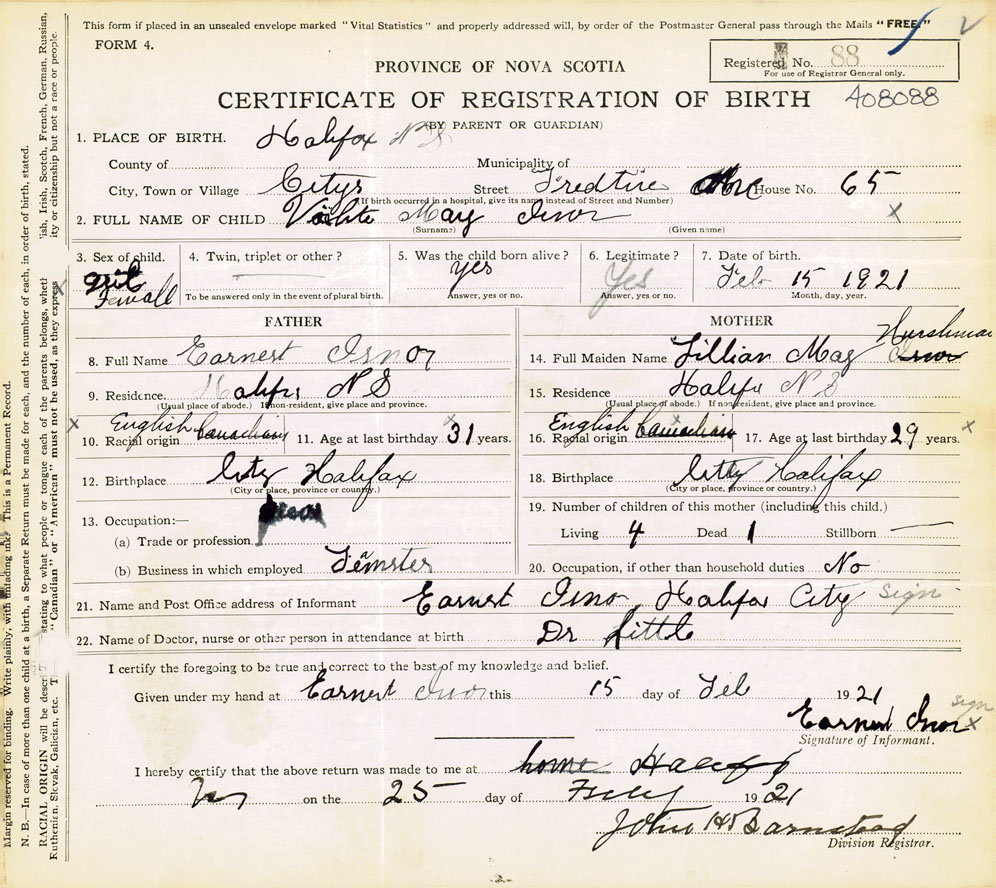 This form if placed in an unsealed envelope marked "Vital Statistics" and properly addressed will, by order of the Postmaster General pass through the Mails "FREE."
FORM 4.
Registered No. 88
For use of Registrar General only.
PROVINCE OF NOVA SCOTIA
CERTIFICATE OF REGISTRATION OF BIRTH 408088
(BY PARENT OR GUARDIAN)
1. PLACE OF BIRTH. Halifax N S
County of Municipality of
City, Town or Village Street House No. 65
(If birth occurred in a hospital, give its name instead of Street and Number)
2. FULL NAME OF CHILD May Isnor x
(Surname) (Given name)
3. Sex of child. 4. Twin, triplet or other? 5. Was the child born alive? 6. Legitimate? 7. Date of birth.
girl Femall yes Yes Feb 15 1921
To be answered only in the event of plural birth. Answer, yes or no. Answer, yes or no. Month, day, year.
FATHER
8. Full Name Earnest Isnor
9. Residence. Halifx N S
(Usual place of abode.) If non-resident, give place and province.
x English
10. Racial origin Canadian 11. Age at last birthday 31 years.
12. Birthplace City Halifax
(City or place, province or country.)
13. Occupation:—
(a) Trade or profession
(b) Business in which employed Temster
MOTHER
14. Full Maiden Name Lillian May Isnor
15. Residence Halifx N S
(Usual place of abode.) If non-resident, give place and province.
English x
16. Racial origin Canadian 17. Age at last birthday 29 years.
18. Birthplace City Halifax
(City or place, province or country.)
19. Number of children of this mother (including this child.)
Living 4 Dead 1 Stillborn —
20. Occupation, if other than household duties No
21. Name and Post Office address of Informant Earnest Isnor, Halifax City sign
22. Name of Doctor, nurse or other person in attendance at birth Dr Little
I certify the foregoing to be true and correct to the best of my knowledge and belief.
Given under my hand at Earnest Isnor this 15 day of Feb 1921
Earnest Isnor x sign
Signature of Informant.
I hereby certify that the above return was made to me at home Halifx
on the 25 day of 1921
John H Barnstead
Division Registrar.
Margin reserved for binding. Write plainly, with unfading ink. This is a Permanent Record.
N. B.—In case of more than one child at a birth, a Separate Return must be made for each, and the number of each, in order of birth, stated.
RACIAL ORIGIN will be descr stating to what people or tongue each of the parents belongs, wheth ish, Irish, Scotch, French, German, Russian,
Ruthenian, Slovak, Galician, etc. T "Canadian" or "American" must not be used, as they express ity or citizenship but not a race or people.